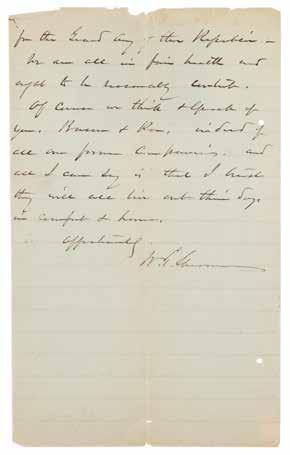 for the Grand Army of the Republic –
We are all in fair health and
ought to be reasonably content.
Of course we think & speak of
you, & indeed of
all our former Companions, and
all I can say is that I trust
they will all live out their days
in comfort & honor.
Affectionately
W. T. Sherman